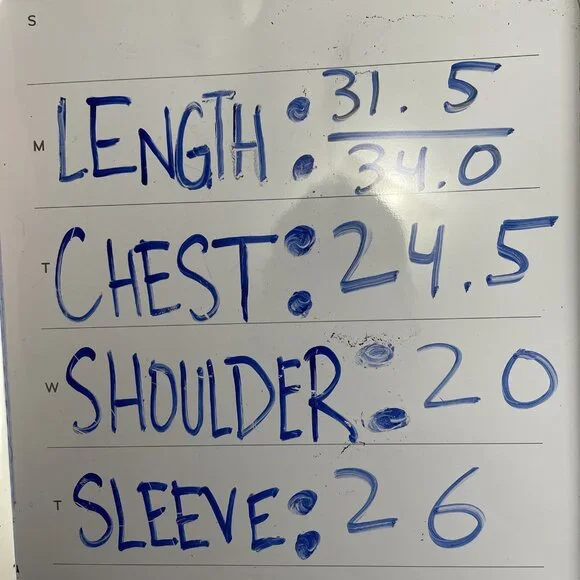 S
M LENGTH: 31.5
34.0
T CHEST: 24.5
W SHOULDER: 20
T SLEEVE: 26